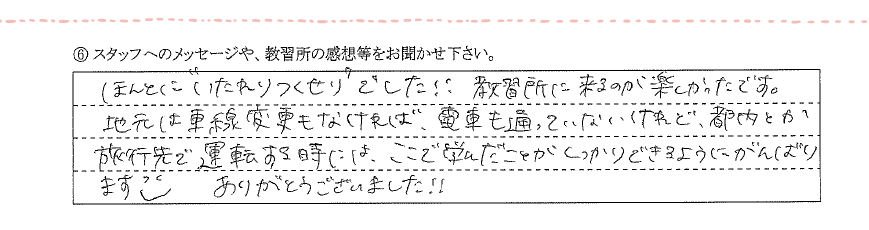 ⑥ スタッフへのメッセージや、教習所の感想等をお聞かせ下さい。
ほんとに"いたれりつくせり"でした!! 教習所に来るのが楽しかったです。
地元は車線変更もなければ、電車も通っていないけれど、都内とか
旅行先で運転する時には、ここで学んだことがしっかりできるようにがんばり
ます ありがとうございました!!